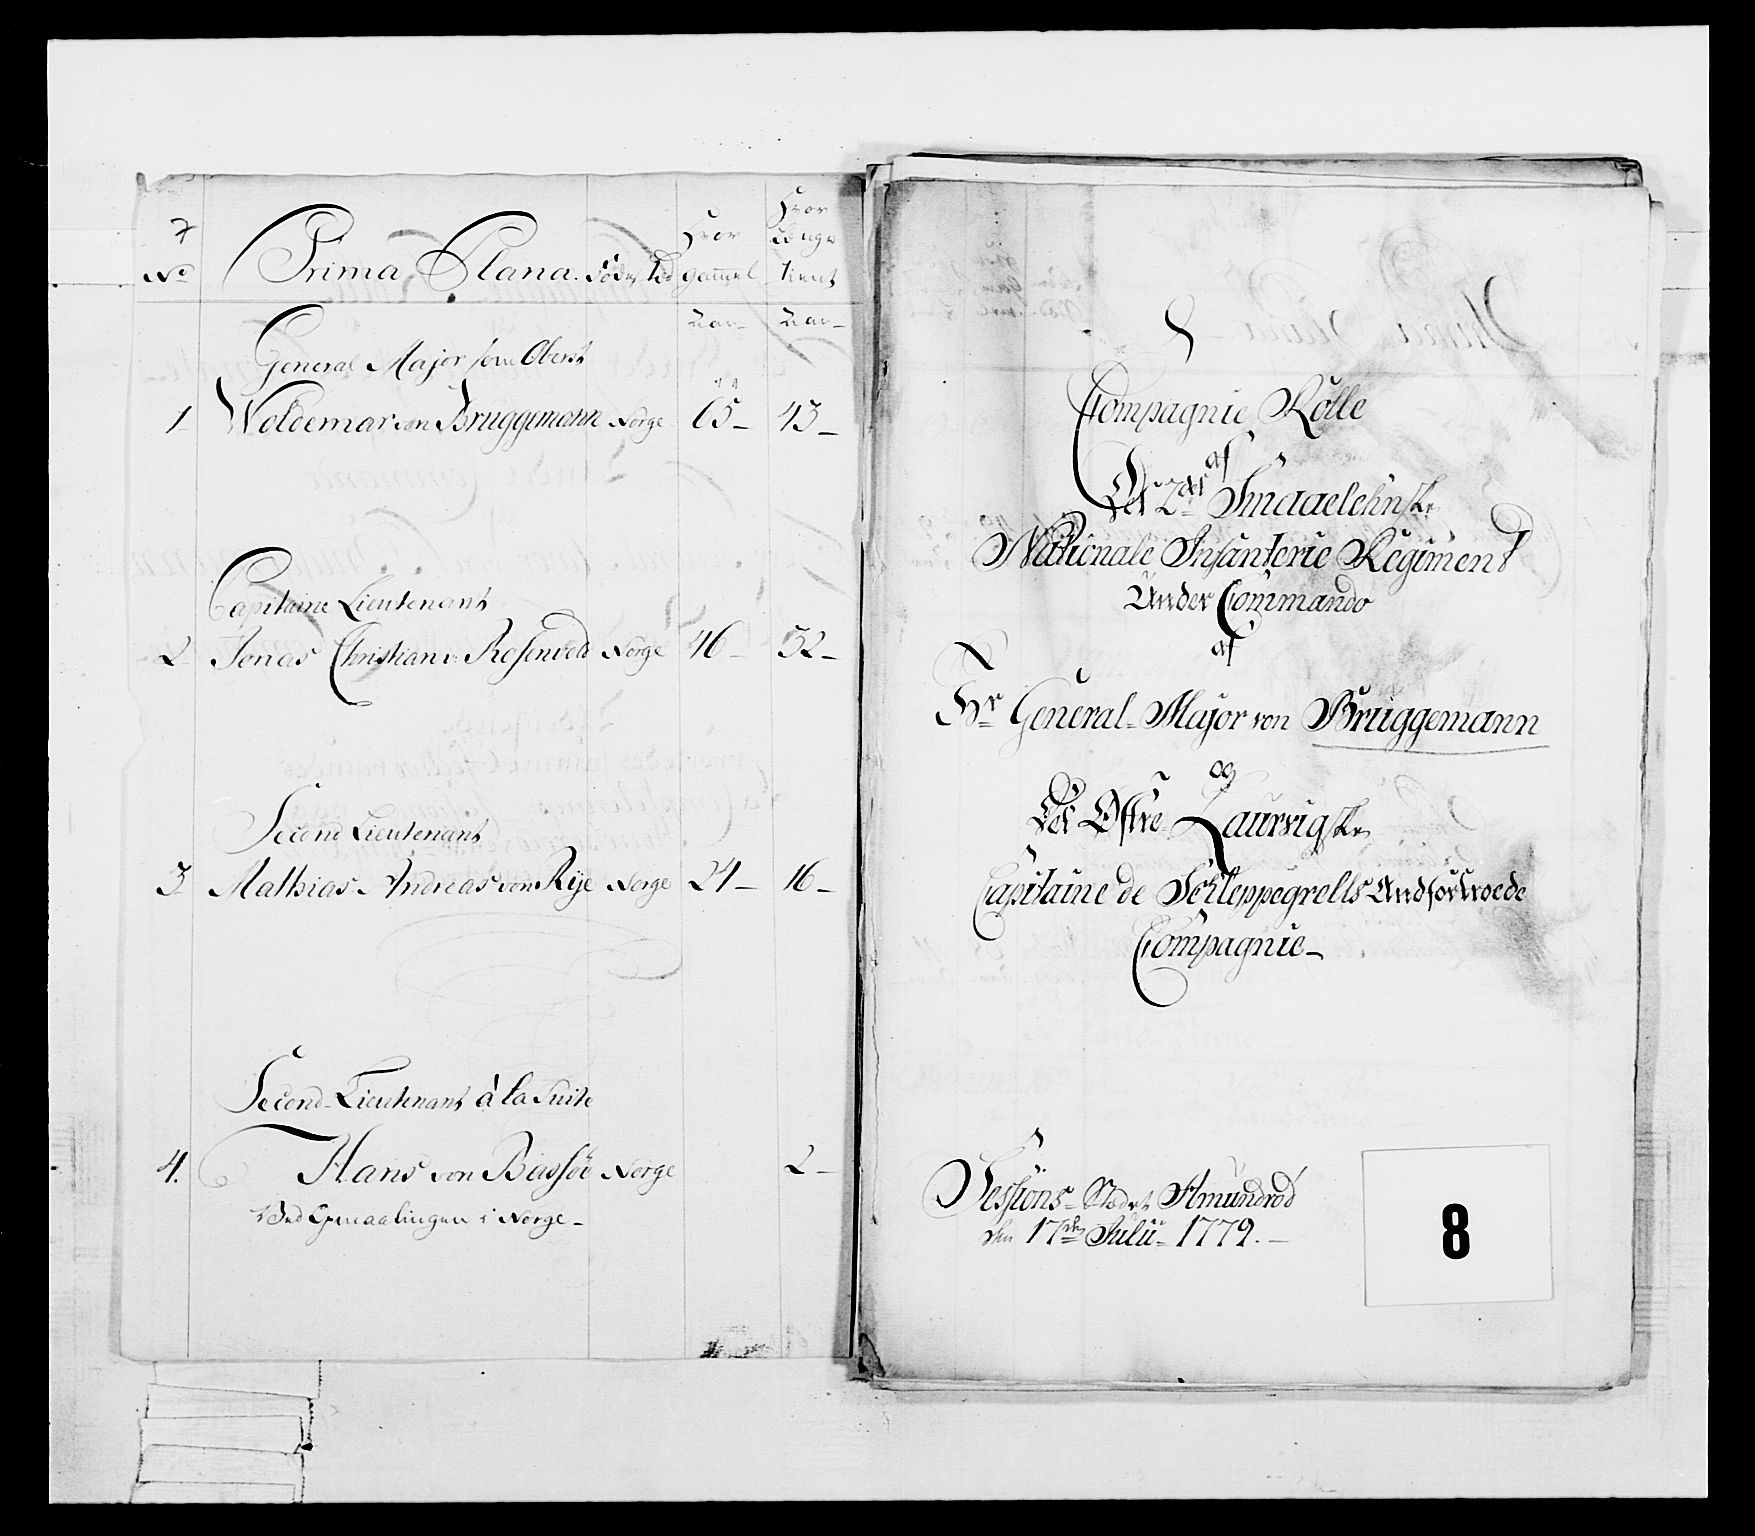 7
No Prima Plana. Føde Stæd Hvor gammel Hvor længe tient
Aar Aar
General Major som Oberst
1 Woldemar von Bruggemann Norge 65 43
Capitaine Lieutenant
2 Jonas Christian v: Rosenvold Norge 46 32
Second Lieutenant
3 Mathias Andreas von Rye Norge 24 16
Second-Lieutenant à la Suite
4. Hans von Bassøe Norge 2
ved Opmaalingen i Norge
8
Compagnie Rolle
af
Det 2det Smaaelehnske
Nationale Infanterie Regiment
Under Commando
af
Hr General-Major von Bruggemann
og
Det Østre Laurvigske
Capitaine de Schleppegrells Andfortroede
Compagnie
Sessions-Stædet Amundrød
den 17de Julii 1779.
8